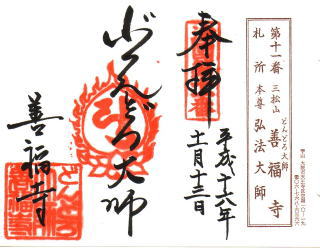 第十一番 三松山
どんどろ大師
善福寺
札所 本尊 弘法大師
奉拝
平成十六年
十一月十三日
どんどろ大師
善福寺